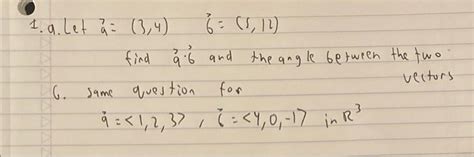 1. a. Let a⃗ = (3,4)  b⃗ = (5,12)
find a⃗·b⃗ and the angle between the two
vectors
b. same question for
a⃗ = <1,2,3>, b⃗ = <4,0,-1> in R³